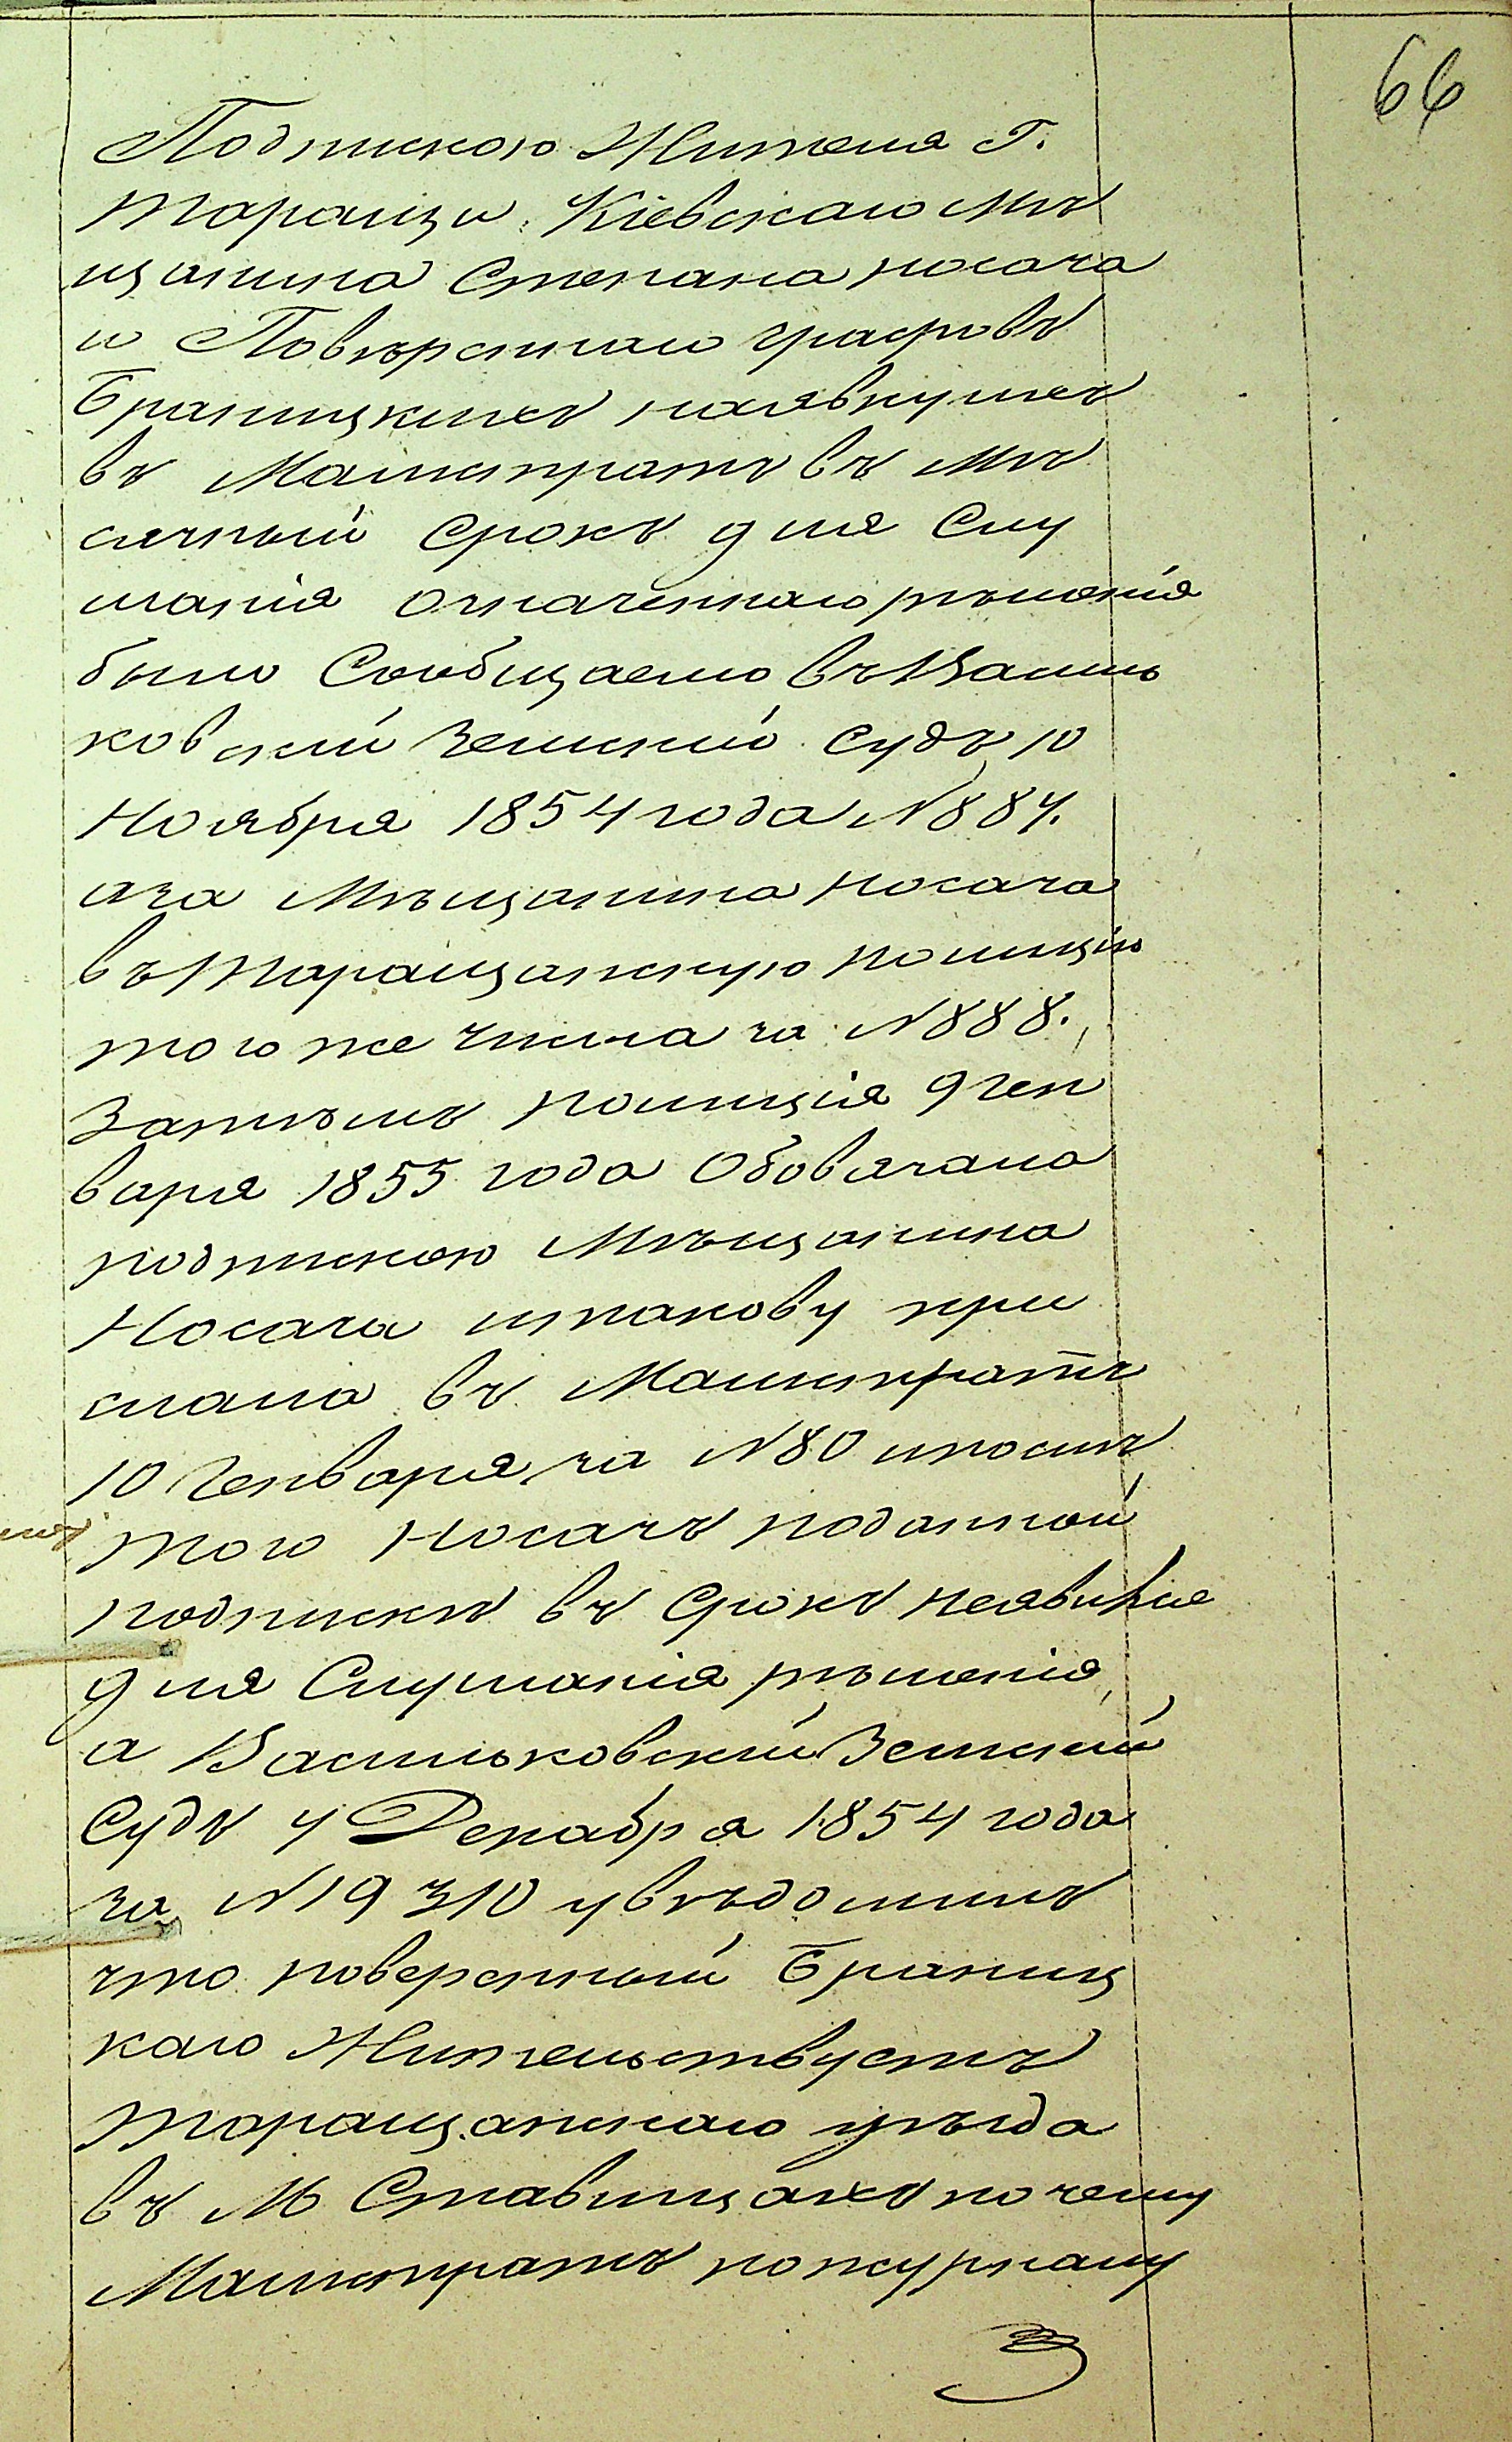 66
Подпискою Жителя Г.
Таращи Кіевскаго Мѣ
щанина Степана Носача
и Повѣреннаго графовъ
Браницкихъ наявку ихъ
въ Магистратъ въ Мѣ
сячный Срокъ для Слу
шанія означеннаго рѣшенія
было Сообщаемо въ Василь
ковскій Земскій Судъ 10
Ноября 1854 года N 887.
аза Мѣщанина Носача
въ Таращанскую полицію
того же числа за N 888.
Затѣмъ полиція 9 Ген
варя 1855 года Обовязала
подпискою Мѣщанина
Носача итакову при
слала въ Магистратъ
10 Генваря за N 80 ипосмѣ
того Носачъ поданной
подпискѣ въ Срокъ неявился
для Слушанія рѣшенія,
а Васильковскій Земскій
Судъ 4 Декабря 1854 года
за N 19310 увѣдомилъ
что поверенный Браниц
каго Жительствуетъ
Таращанскаго уѣзда
въ М Ставищахъ почему
Магистратъ пожурналу